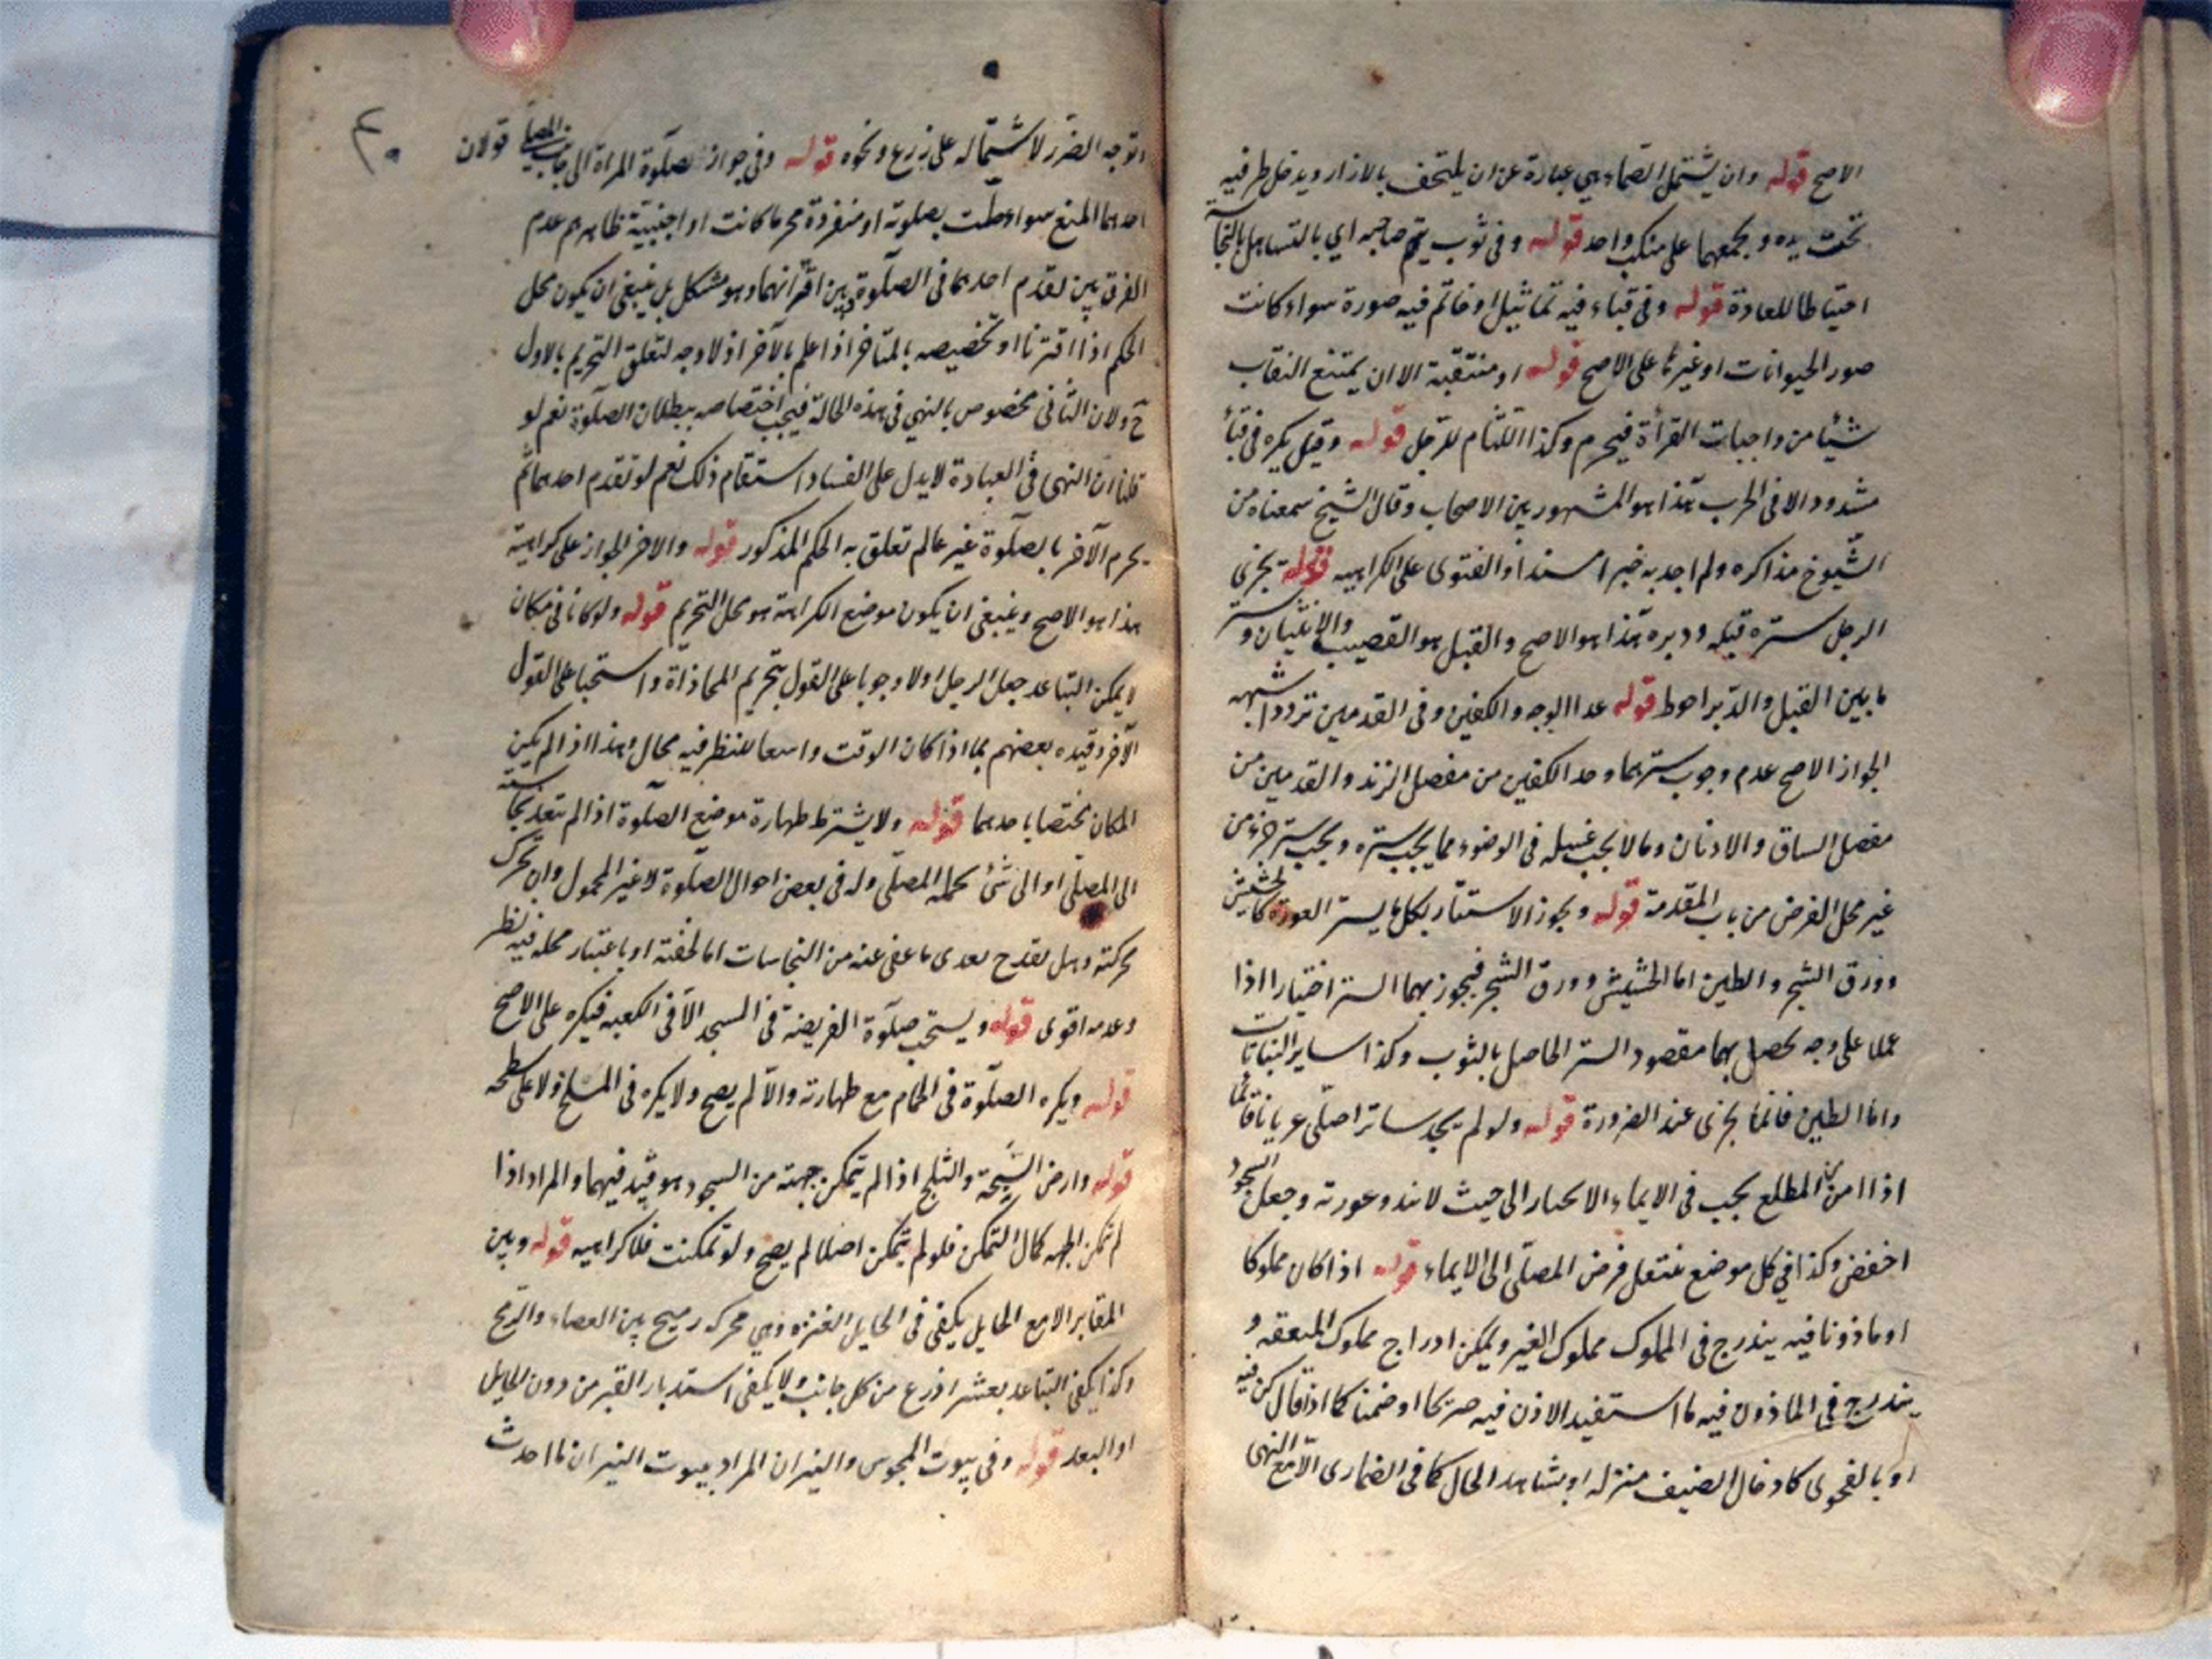 الاصح قوله وان يشتمل الصماء هي عبارة عن ان يلتحف بالازار ويدخل طرفيه
تحت يده ويجمعهما على منكب واحد قوله وفى ثوب يتهم صاحبه اي بالتساهل بالنجاسة
احتياطا للعادة قوله وفى قباء فيه تماثيل او خاتم فيه صورة سواء كانت
صور الحيوانات او غيرها على الاصح قوله او منتقبة الا ان يمتنع النقاب
شيئا من واجبات القرأة فيحرم وكذا اللثام للرجل قوله وقيل يكره فى قباء
مشدود الا فى الحرب هذا هو المشهور بين الاصحاب وقال الشيخ سمعناه من
الشيوخ مذاكره ولم اجد به خبرا مسندا والفتوى على الكراهيه قوله يجزى
الرجل ستره قبله ودبره هذا هو الاصح والقبل هو القضيب والانثيان وستر
ما بين القبل والدبر احوط قوله عدا الوجه والكفين وفى القدمين تردد اشبهه
الجواز الاصح عدم وجوب سترهما وحد الكفين من مفصل الزند والقدمين من
مفصل الساق والاذنان وما لا يجب غسله فى الوضوء مما يجب ستره ويجب ستر جزء من
غير محل الفرض من باب المقدمة قوله ويجوز الاستتار بكل ما يستر العورة كالحشيش
وورق الشجر والطين اما الحشيش وورق الشجر فيجوز بهما الستر اختيارا اذا
عملا على وجه يحصل بهما مقصود الستر الحاصل بالثوب وكذا ساير النباتات
واما الطين فانما يجزى عند الضرورة قوله ولو لم يجد ساترا صلى عريانا قائما
اذا امن المطلع يجب فى الايماء الانحناء الى حيث لا تبدو عورته وجعل السجود
اخفض وكذا في كل موضع ينتقل فرض المصلى الى الايماء قوله اذا كان مملوكا
او ماذونا فيه يندرج فى المملوك مملوك الغير ويمكن ادراج مملوك المنفعه و
يندرج فى الماذون فيه ما استفيد الاذن فيه صريحا او ضمنا كما اذا قال كن فيه
او بالفحوى كادخال الضيف منزله او بشاهد الحال كما فى الصحارى الا مع النهى
وتوجه الضرر لاشتماله على زرع ونحوه قوله وفى جواز صلوة المراة الى جانب المصلي قولان
احدهما المنع سواء صلت بصلوته او منفردة محرما كانت او اجنبية ظاهرهم عدم
الفرق بين تقدم احدهما فى الصلوة وبين اقترانهما وهو مشكل بل ينبغى ان يكون محل
الحكم اذا اقترنا او تخصيصه بالمتاخر اذا علم بالاخر اذ لا وجه لتعلق التحريم بالاول
ح ولان الثانى مخصوص بالنهي فى هذه الحالة فيجب اختصاصه ببطلان الصلوة نعم لو
قلنا ان النهى فى العبادة لا يدل على الفساد استقام ذلك نعم لو تقدم احدهما ثم
يحرم الاخر بالصلوة غير عالم تعلق به الحكم المذكور قوله والاخر الجواز على كراهية
هذا هو الاصح وينبغى ان يكون موضع الكراهة هو محل التحريم قوله ولو كانا فى مكان
لا يمكن التباعد جعل الرجل اولا وجوبا على القول بتحريم المحاذاة واستحبابا على القول
الاخر وقيده بعضهم بما اذا كان الوقت واسعا للنظر فيه مجال وهذا اذا لم يكن
المكان مختصا باحدهما قوله ولا يشترط طهارة موضع الصلوة اذا لم تتعد نجاسته
الى المصلى او الى شئ يحمله المصلى ولو فى بعض احوال الصلوة لا غير المحمول وان تحرك
بحركته وهل يقدح تعدى ما عفى عنه من النجاسات اما لخفته او باعتبار محله فيه نظر
وعدمه اقوى قوله ويستحب صلوة الفريضة فى المسجد الا فى الكعبه فيكره على الاصح
قوله ويكره الصلوة فى الحمام مع طهارته والا لم يصح ولا يكره فى المسلخ ولا على سطحه
قوله وارض السبخة والثلج اذا لم يتمكن جبهته من السجود هو قيد فيهما والمراد اذا
لم تمكن الجبهه كمال التمكن فلو لم يتمكن اصلا لم يصح ولو تمكنت فلا كراهيه قوله وبين
المقابر الا مع الحايل يكفى فى الحايل العنزه وهي محركه رميح بين العصاء والرمح
وكذا يكفى التباعد بعشر اذرع من كل جانب ولا يكفى استدبار القبر من دون الحايل
او البعد قوله وفى بيوت المجوس والنيران المراد ببيوت النيران ما احدث